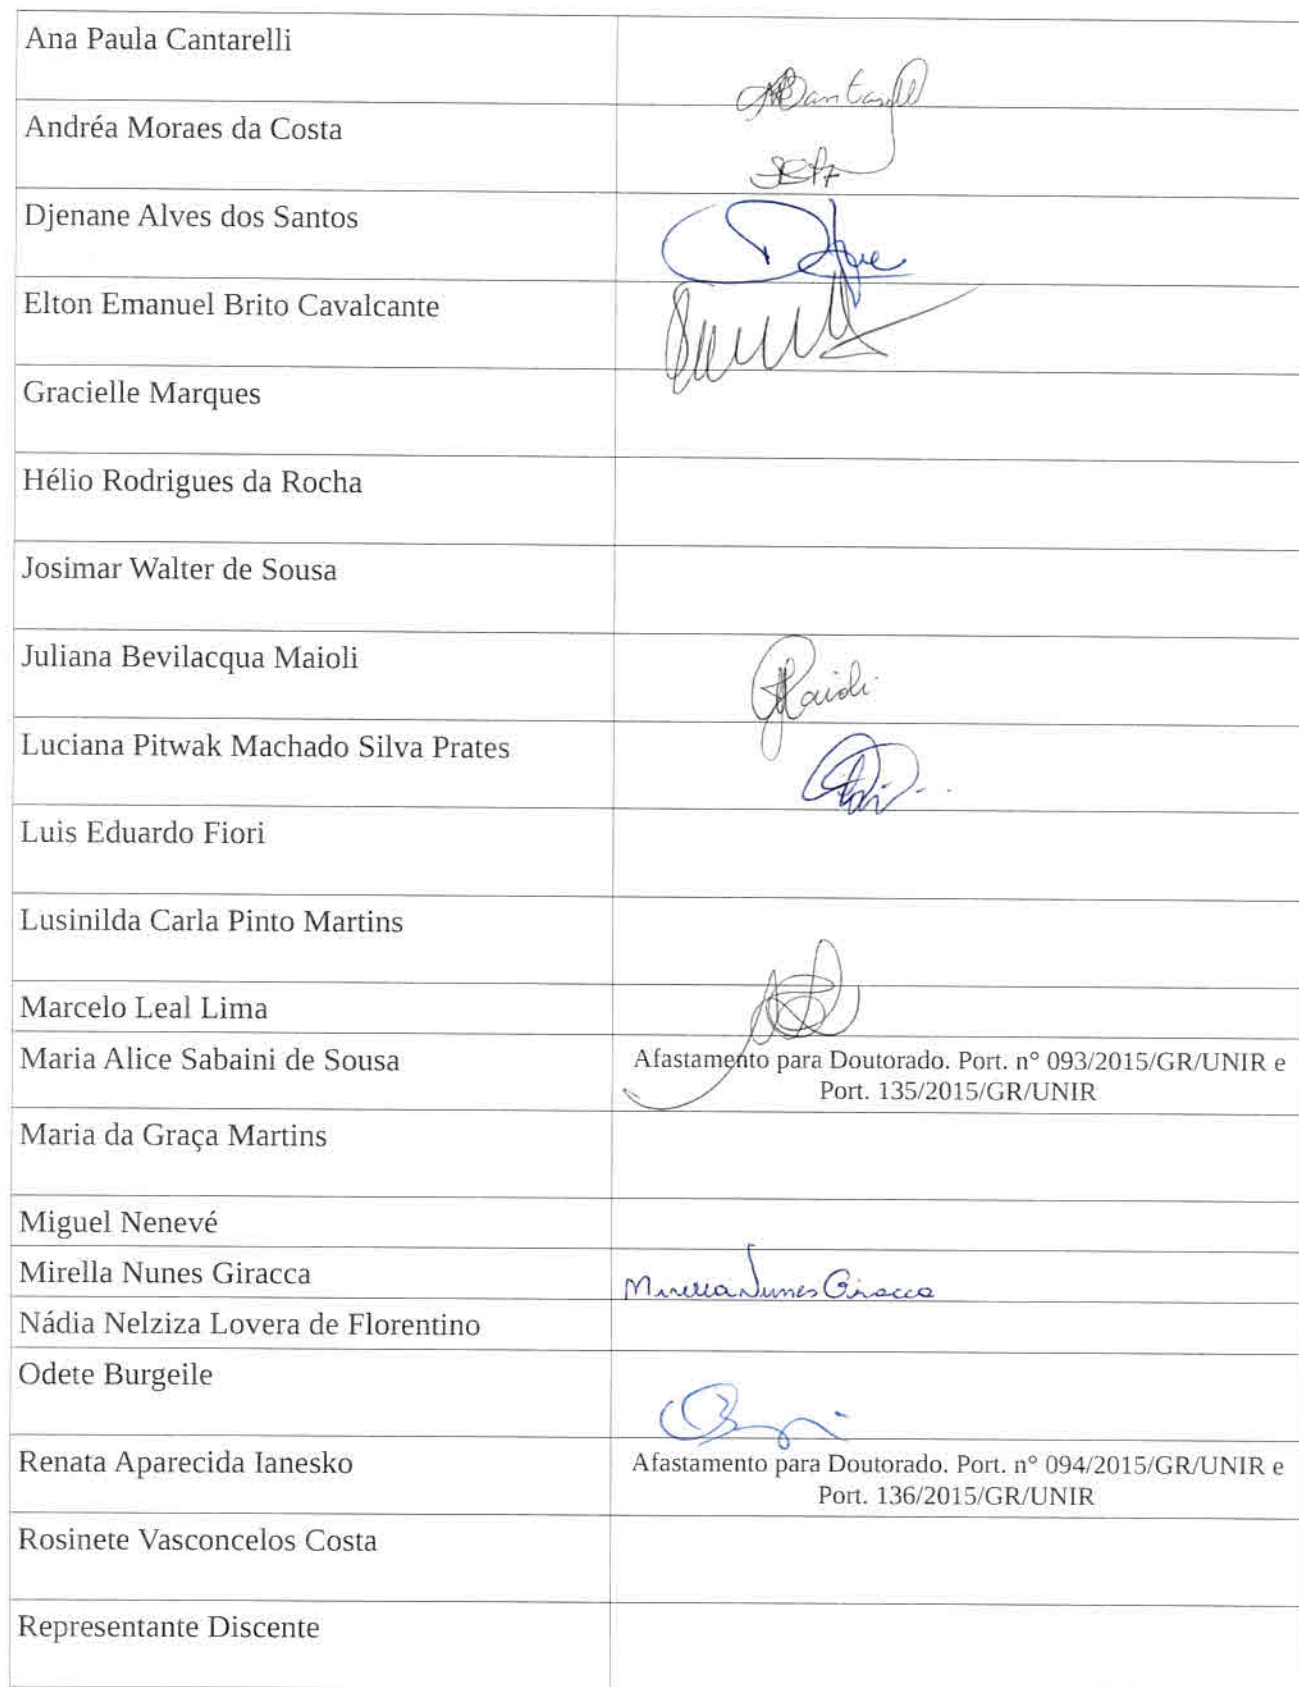 Ana Paula Cantarelli
Andréa Moraes da Costa
Djenane Alves dos Santos
Elton Emanuel Brito Cavalcante
Gracielle Marques
Hélio Rodrigues da Rocha
Josimar Walter de Sousa
Juliana Bevilacqua Maioli
Maioli
Luciana Pitwak Machado Silva Prates
Luis Eduardo Fiori
Lusinilda Carla Pinto Martins
Marcelo Leal Lima
Maria Alice Sabaini de Sousa
Afastamento para Doutorado. Port. nº 093/2015/GR/UNIR e
Port. 135/2015/GR/UNIR
Maria da Graça Martins
Miguel Nenevé
Mirella Nunes Giracca
Mirella Nunes Giracca
Nádia Nelziza Lovera de Florentino
Odete Burgeile
Renata Aparecida Ianesko
Afastamento para Doutorado. Port. nº 094/2015/GR/UNIR e
Port. 136/2015/GR/UNIR
Rosinete Vasconcelos Costa
Representante Discente